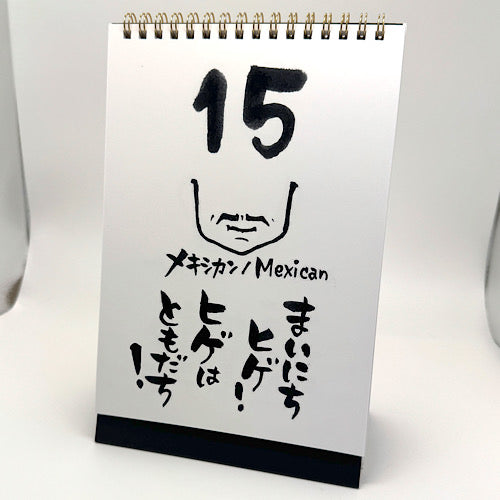 15
メキシカン/Mexican
まいにち
ヒゲ!
ヒゲは
ともだち
!